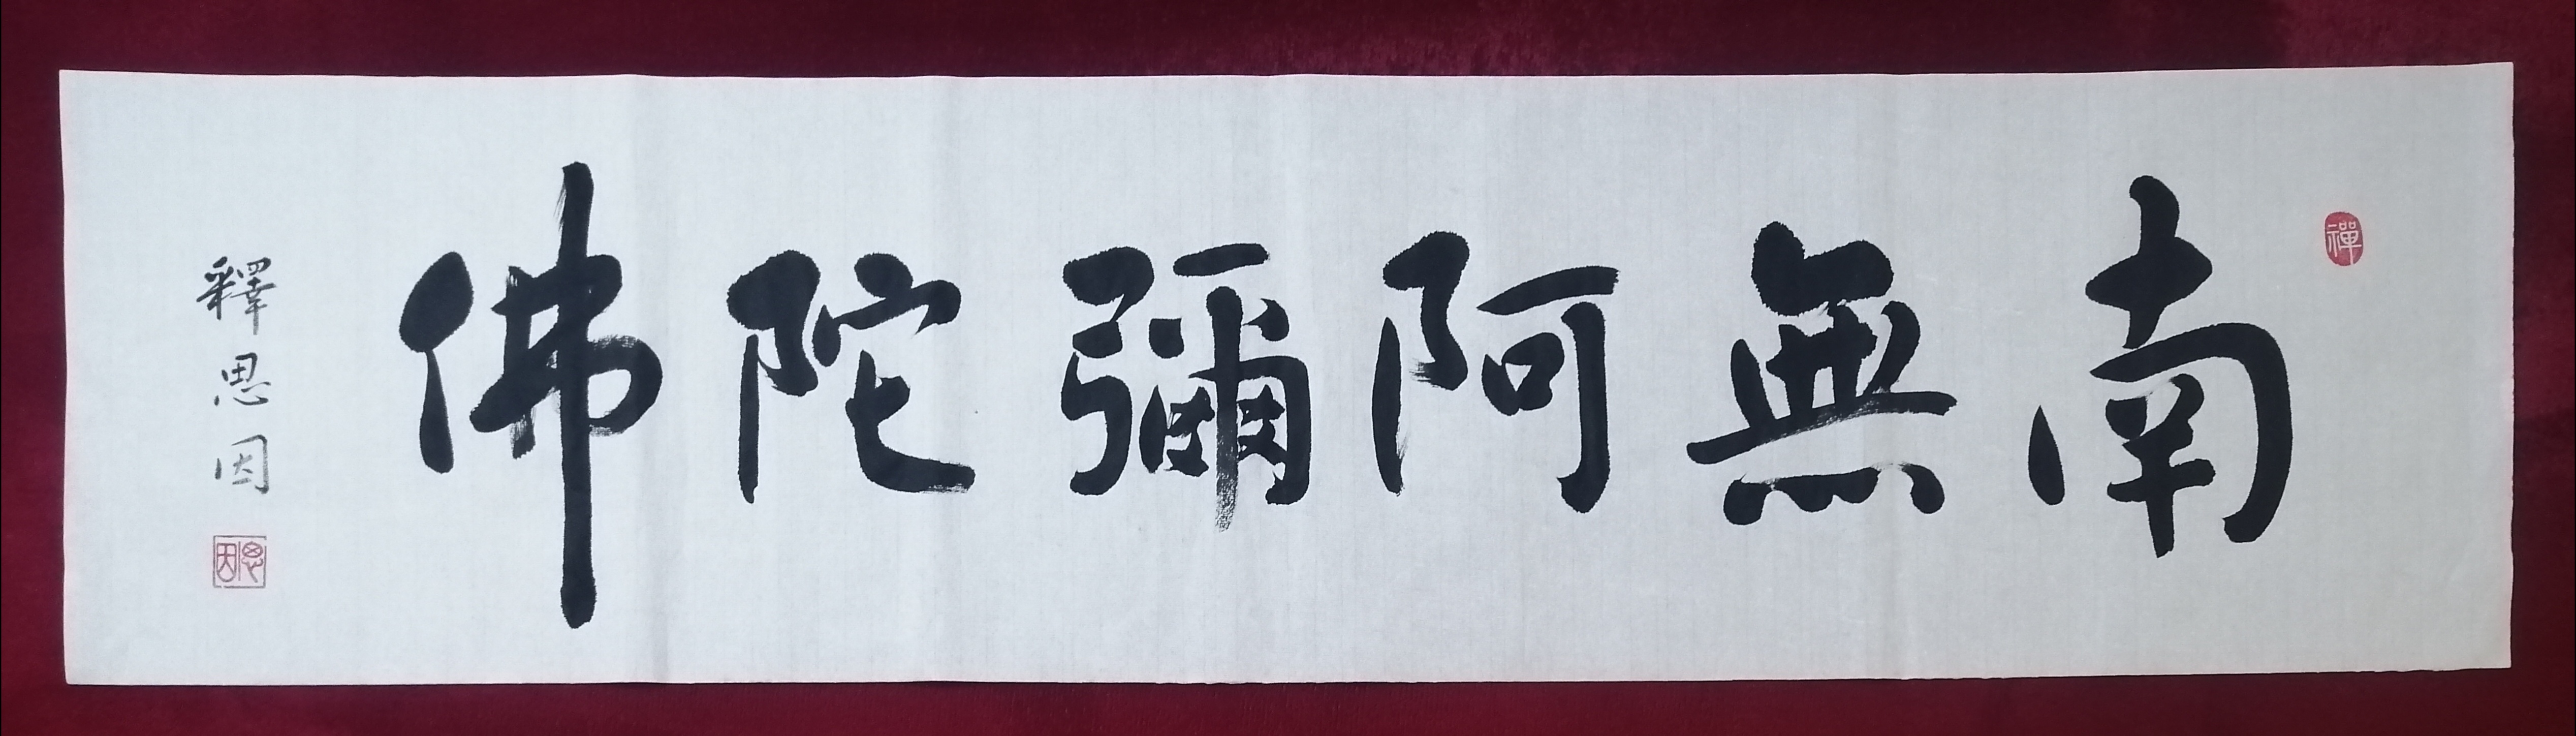 禪
南無阿彌陀佛
釋思因
思因